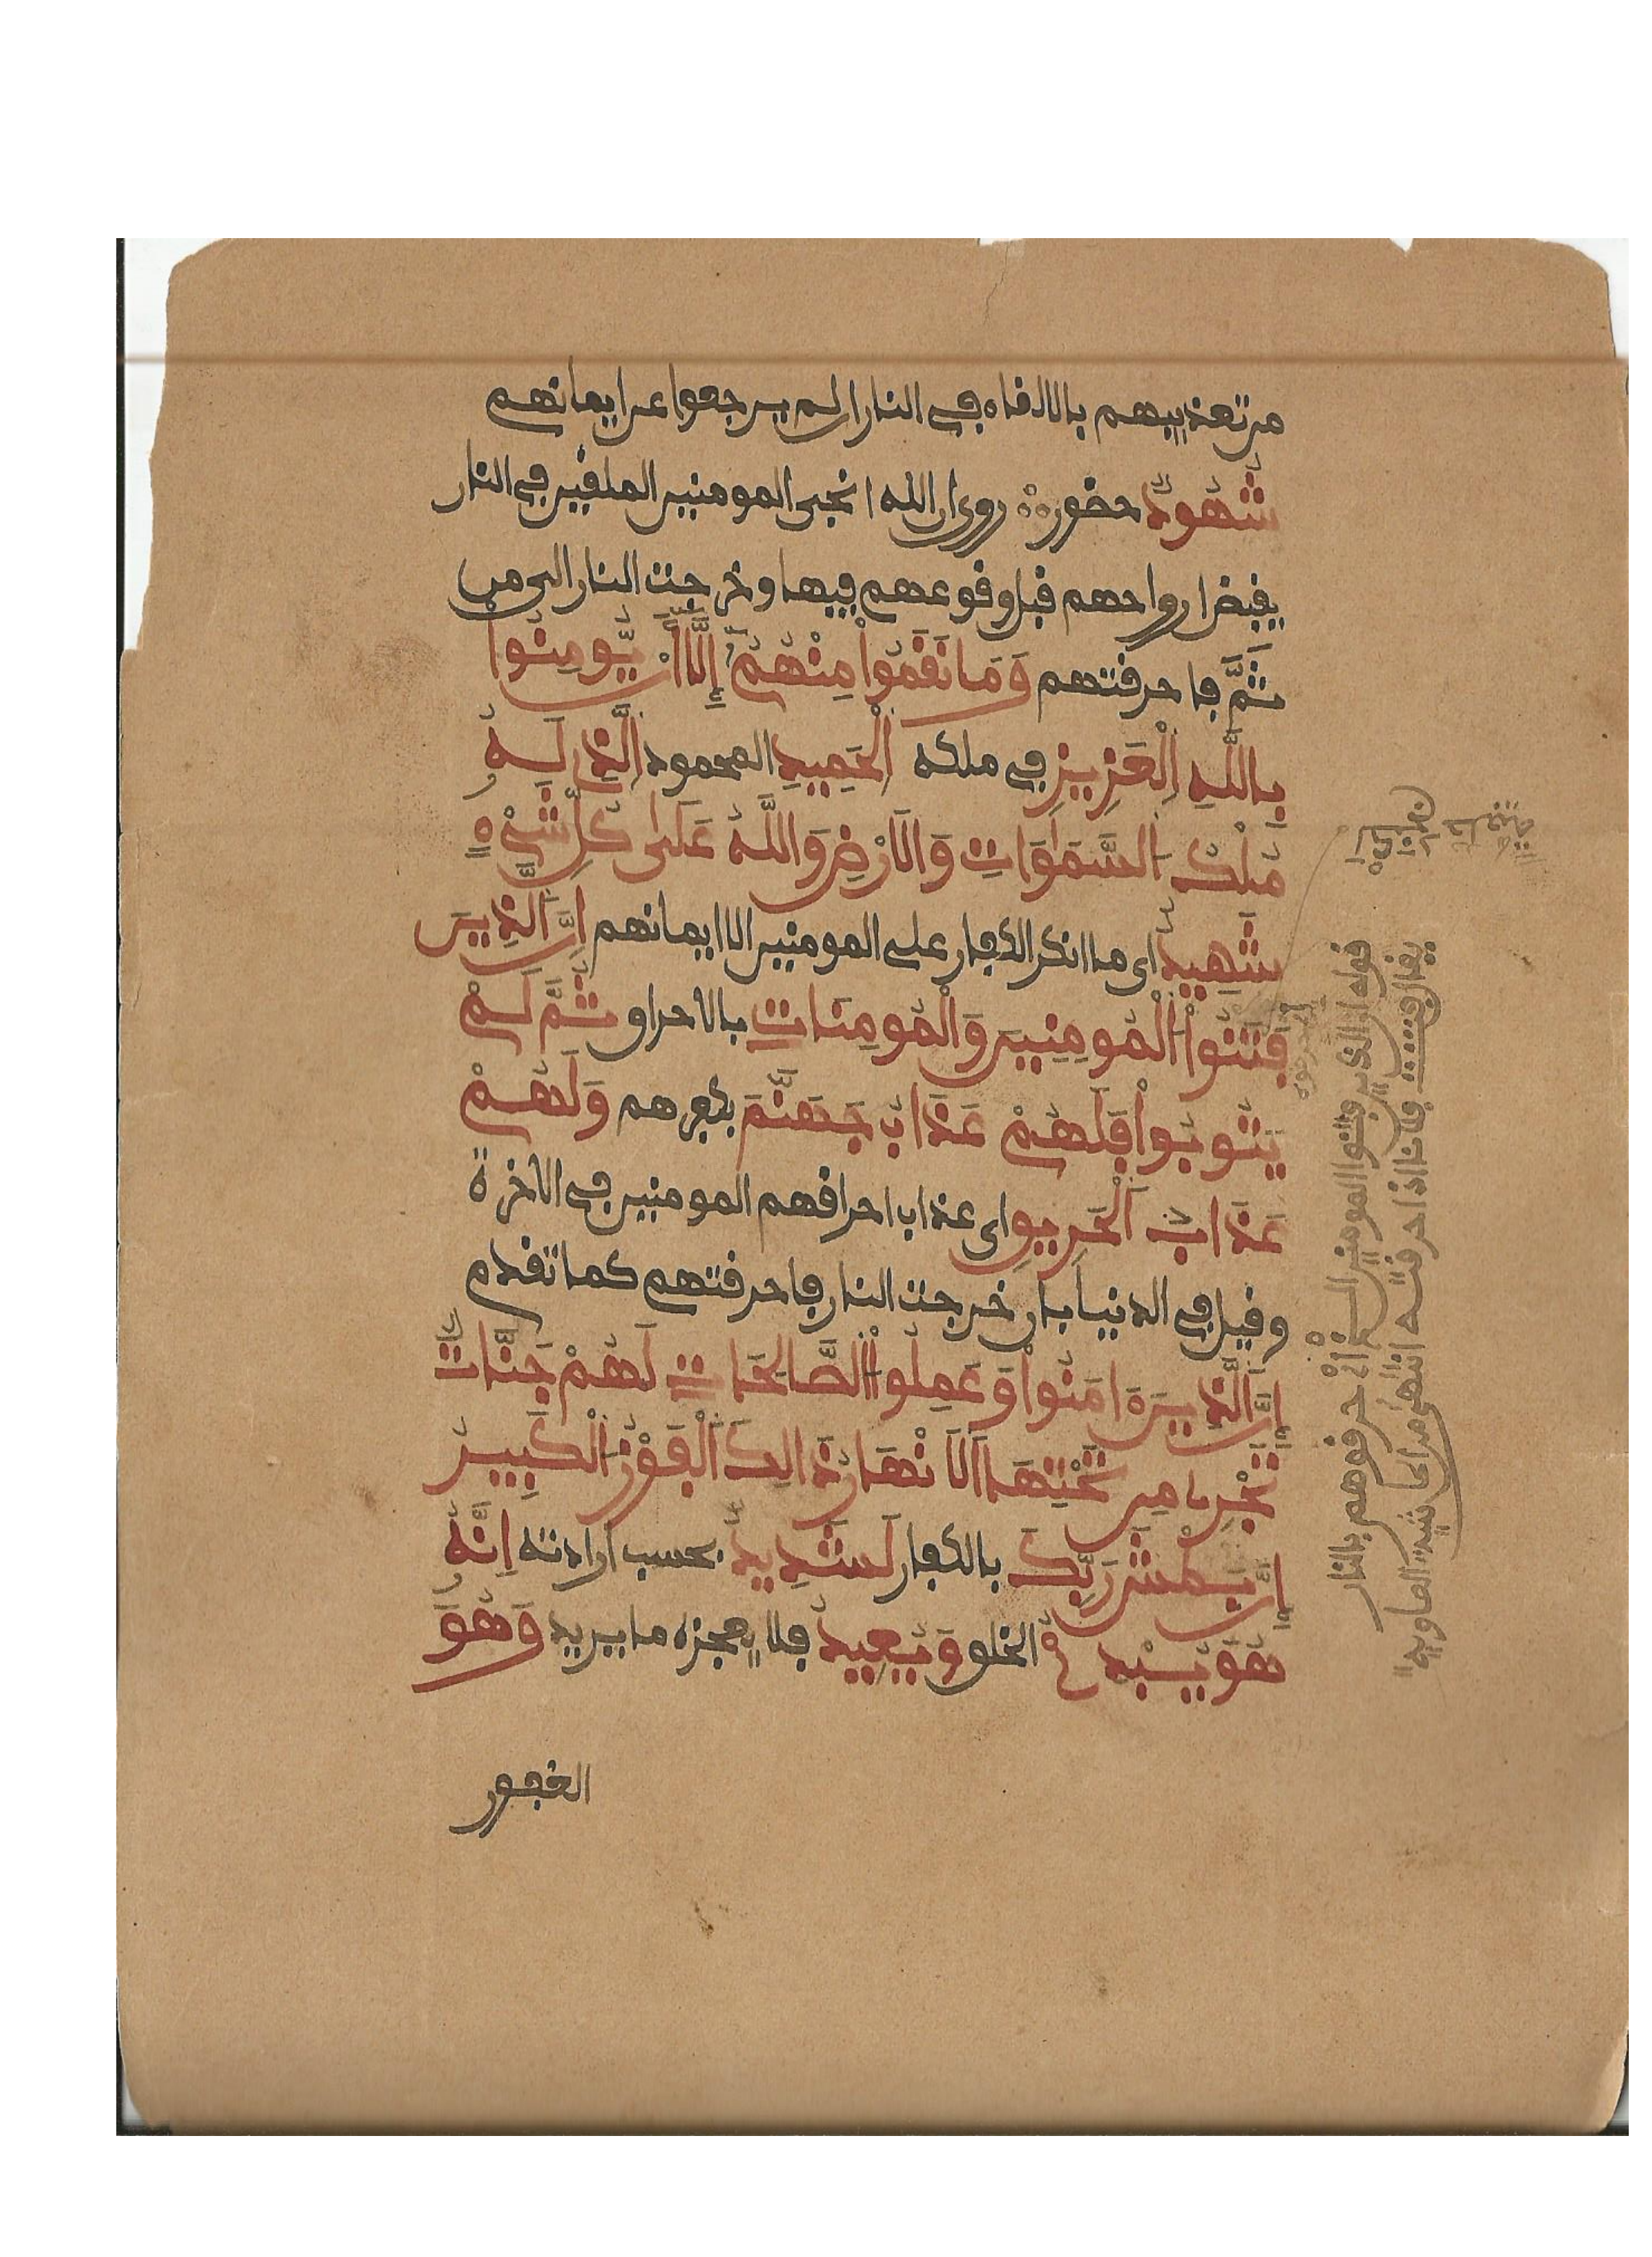 من تعذيبهم بالالفاه في النار ان لم يرجعوا عن ايمانهم
شُهُودٌ حضور روى ان الله انجى المومنين الملقين في النار
بقبض ارواحهم قبل وقوعهم فيها وخرجت النار الى من
ثَمَّ فاحرقتهم وَمَا نَقَمُواْ مِنْهُمُۥ إِلَّا أَنْ يُّومِنُواْ
بِاللَّهِ الْعَزِيزِ في ملكه الْحَمِيدِ المحمود الَّذِي لَهُۥ
مُلْكُ السَّمَٰوَاتِ وَالَارْضِ وَاللَّهُ عَلَىٰ كُلِّ شَيْءٍ
شَهِيدٌ اي ما انكر الكفار على المومنين الا ايمانهم إِنَّ الَّذِينَ
فَتَنُواْ الْمُومِنِينَ وَالْمُومِنَاتِ بالاحراق ثُمَّ لَمْ
يَتُوبُواْ فَلَهُمْ عَذَابُ جَهَنَّمَ بكفرهم وَلَهُمْ
عَذَابُ الْحَرِيقِ اي عذاب احراقهم المومنين في الاخرة
وقيل في الدنيا بان خرجت النار فاحرقتهم كما تقدم
إِنَّ الَّذِينَ ءَامَنُواْ وَعَمِلُواْ الصَّالِحَاتِ لَهُمْ جَنَّاتٌ
تَجْرِي مِن تَحْتِهَا الَانْهَارُ ذَالِكَ الْفَوْزُ الْكَبِيرُ
إِنَّ بَطْشَ رَبِّكَ بالكفار لَشَدِيدٌ بحسب ارادته إِنَّهُۥ
هُوَ يُبْدِئُ الخلق وَيُعِيدُ فلا يعجزه ما يريد وَهُوَ
الغفور
قوله ان الذين فتنوا المومنين الخ أي حرقوهم بالنار
يقال فتنت فلانا اذا احرقته انتهى من حاشية الصاوي